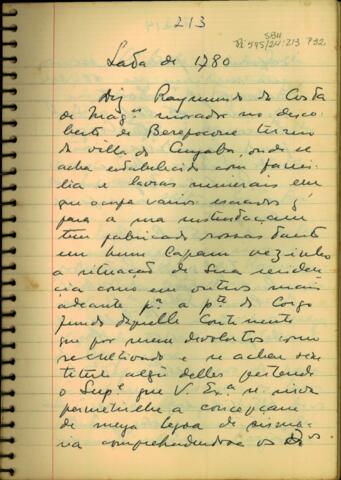 213
SBH
Pi 595/24:213 P32
Lada de 1780
Diz Raymundo da Costa
de Magᵉˢ morador no desco-
berto de Beripocone termo
da villa do Cuyabá, onde se
acha estabelecido com famí-
lia e lavras minerais em
que ocupa varios escravos q
para a sua sustentaçam
tem fabricado rossas
em hum Capam vezinho
a situação de sua residen-
cia como em outros mais
adeante pª a pᵗᵉ do Corgo
fundo daquelle Continente
que por serem devolutos
e se achar sem
titulo algũ delles pertende
o Supᵉ que V. Exª se sirva
permetirlhe a concepçam
de meya legoa de sisma-
ria comprehendendose os